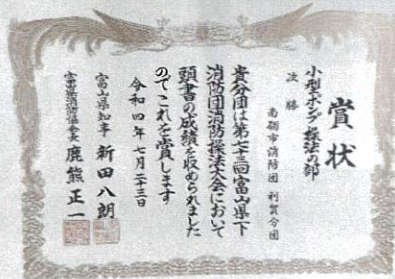 賞状
小型ポンプ操法の部
次勝
南砺市消防団 利賀分団
貴分団は第七三回富山県下
消防団消防操法大会において
頭書の成績を収められました
のでこれを賞します
令和四年七月二十三日
富山県知事 新田八朗
富山県消防協会長 鹿熊正一